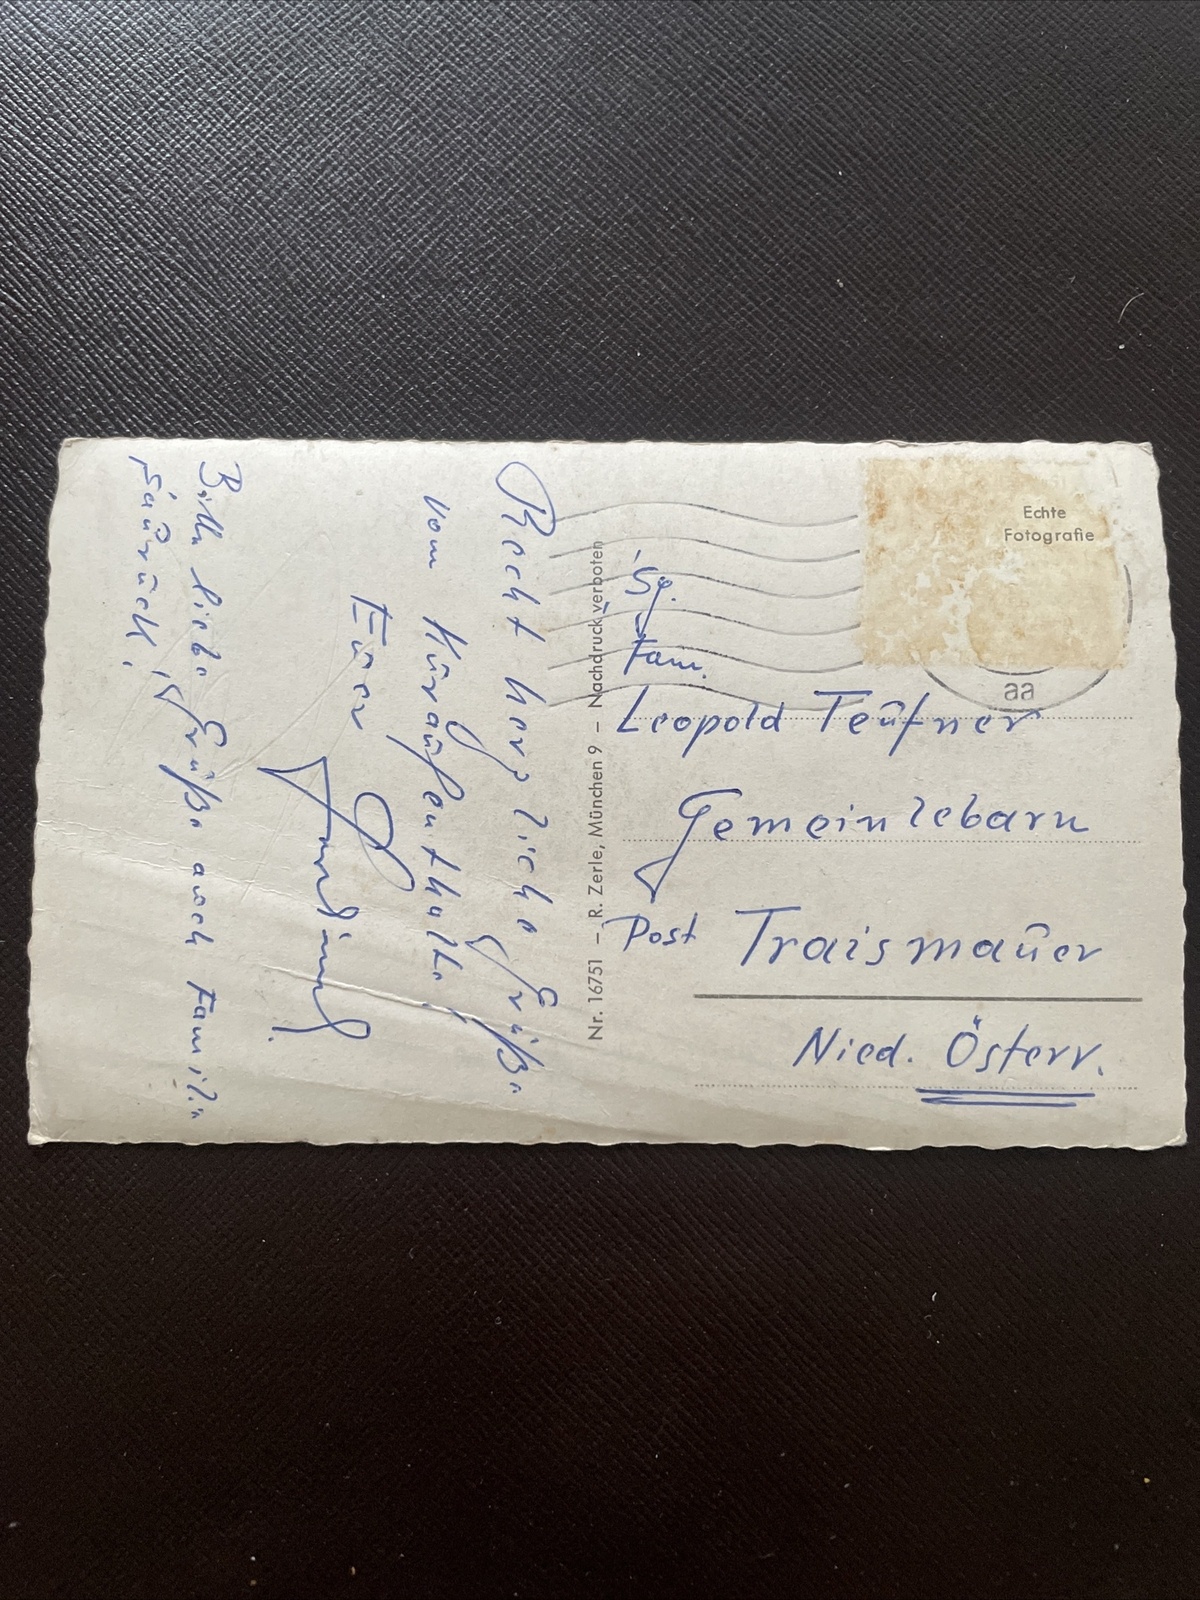 Recht herzliche Grüße
vom Kuraufenthalte,
Euer
Ferdinand.
Bitte liebe Grüße auch Familie
Nr. 16751 – R. Zerle, München 9 – Nachdruck verboten
Echte
Fotografie
aa
Sg.
Fam.
Leopold Teufner
Gemeinlebarn
Post Traismauer
Nied. Österr.